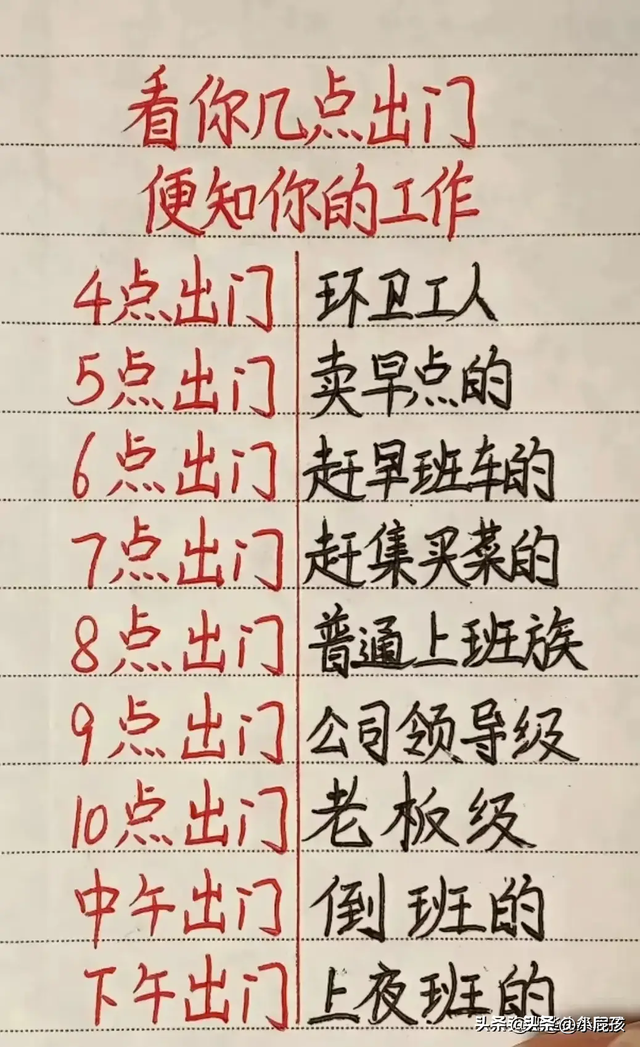 看你几点出门
便知你的工作
4点出门 环卫工人
5点出门 卖早点的
6点出门 赶早班车的
7点出门 赶集买菜的
8点出门 普通上班族
9点出门 公司领导级
10点出门 老板级
中午出门 倒班的
下午出门 上夜班的